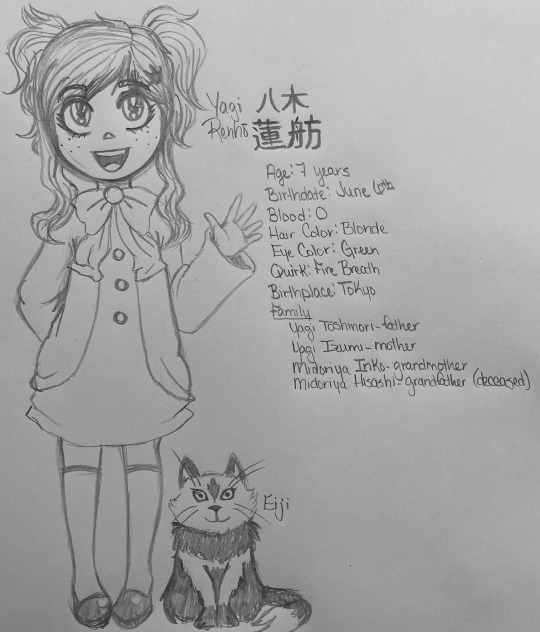 Yagi 八木
Renhō 蓮舫
Age: 7 years
Birthdate: June 6th
Blood: O
Hair Color: Blonde
Eye Color: Green
Quirk: Fire Breath
Birthplace: Tokyo
Family
Yagi Toshinori-father
Yagi Izumi-mother
Midoriya Inko-grandmother
Midoriya Hisashi-grandfather (deceased)
Eiji